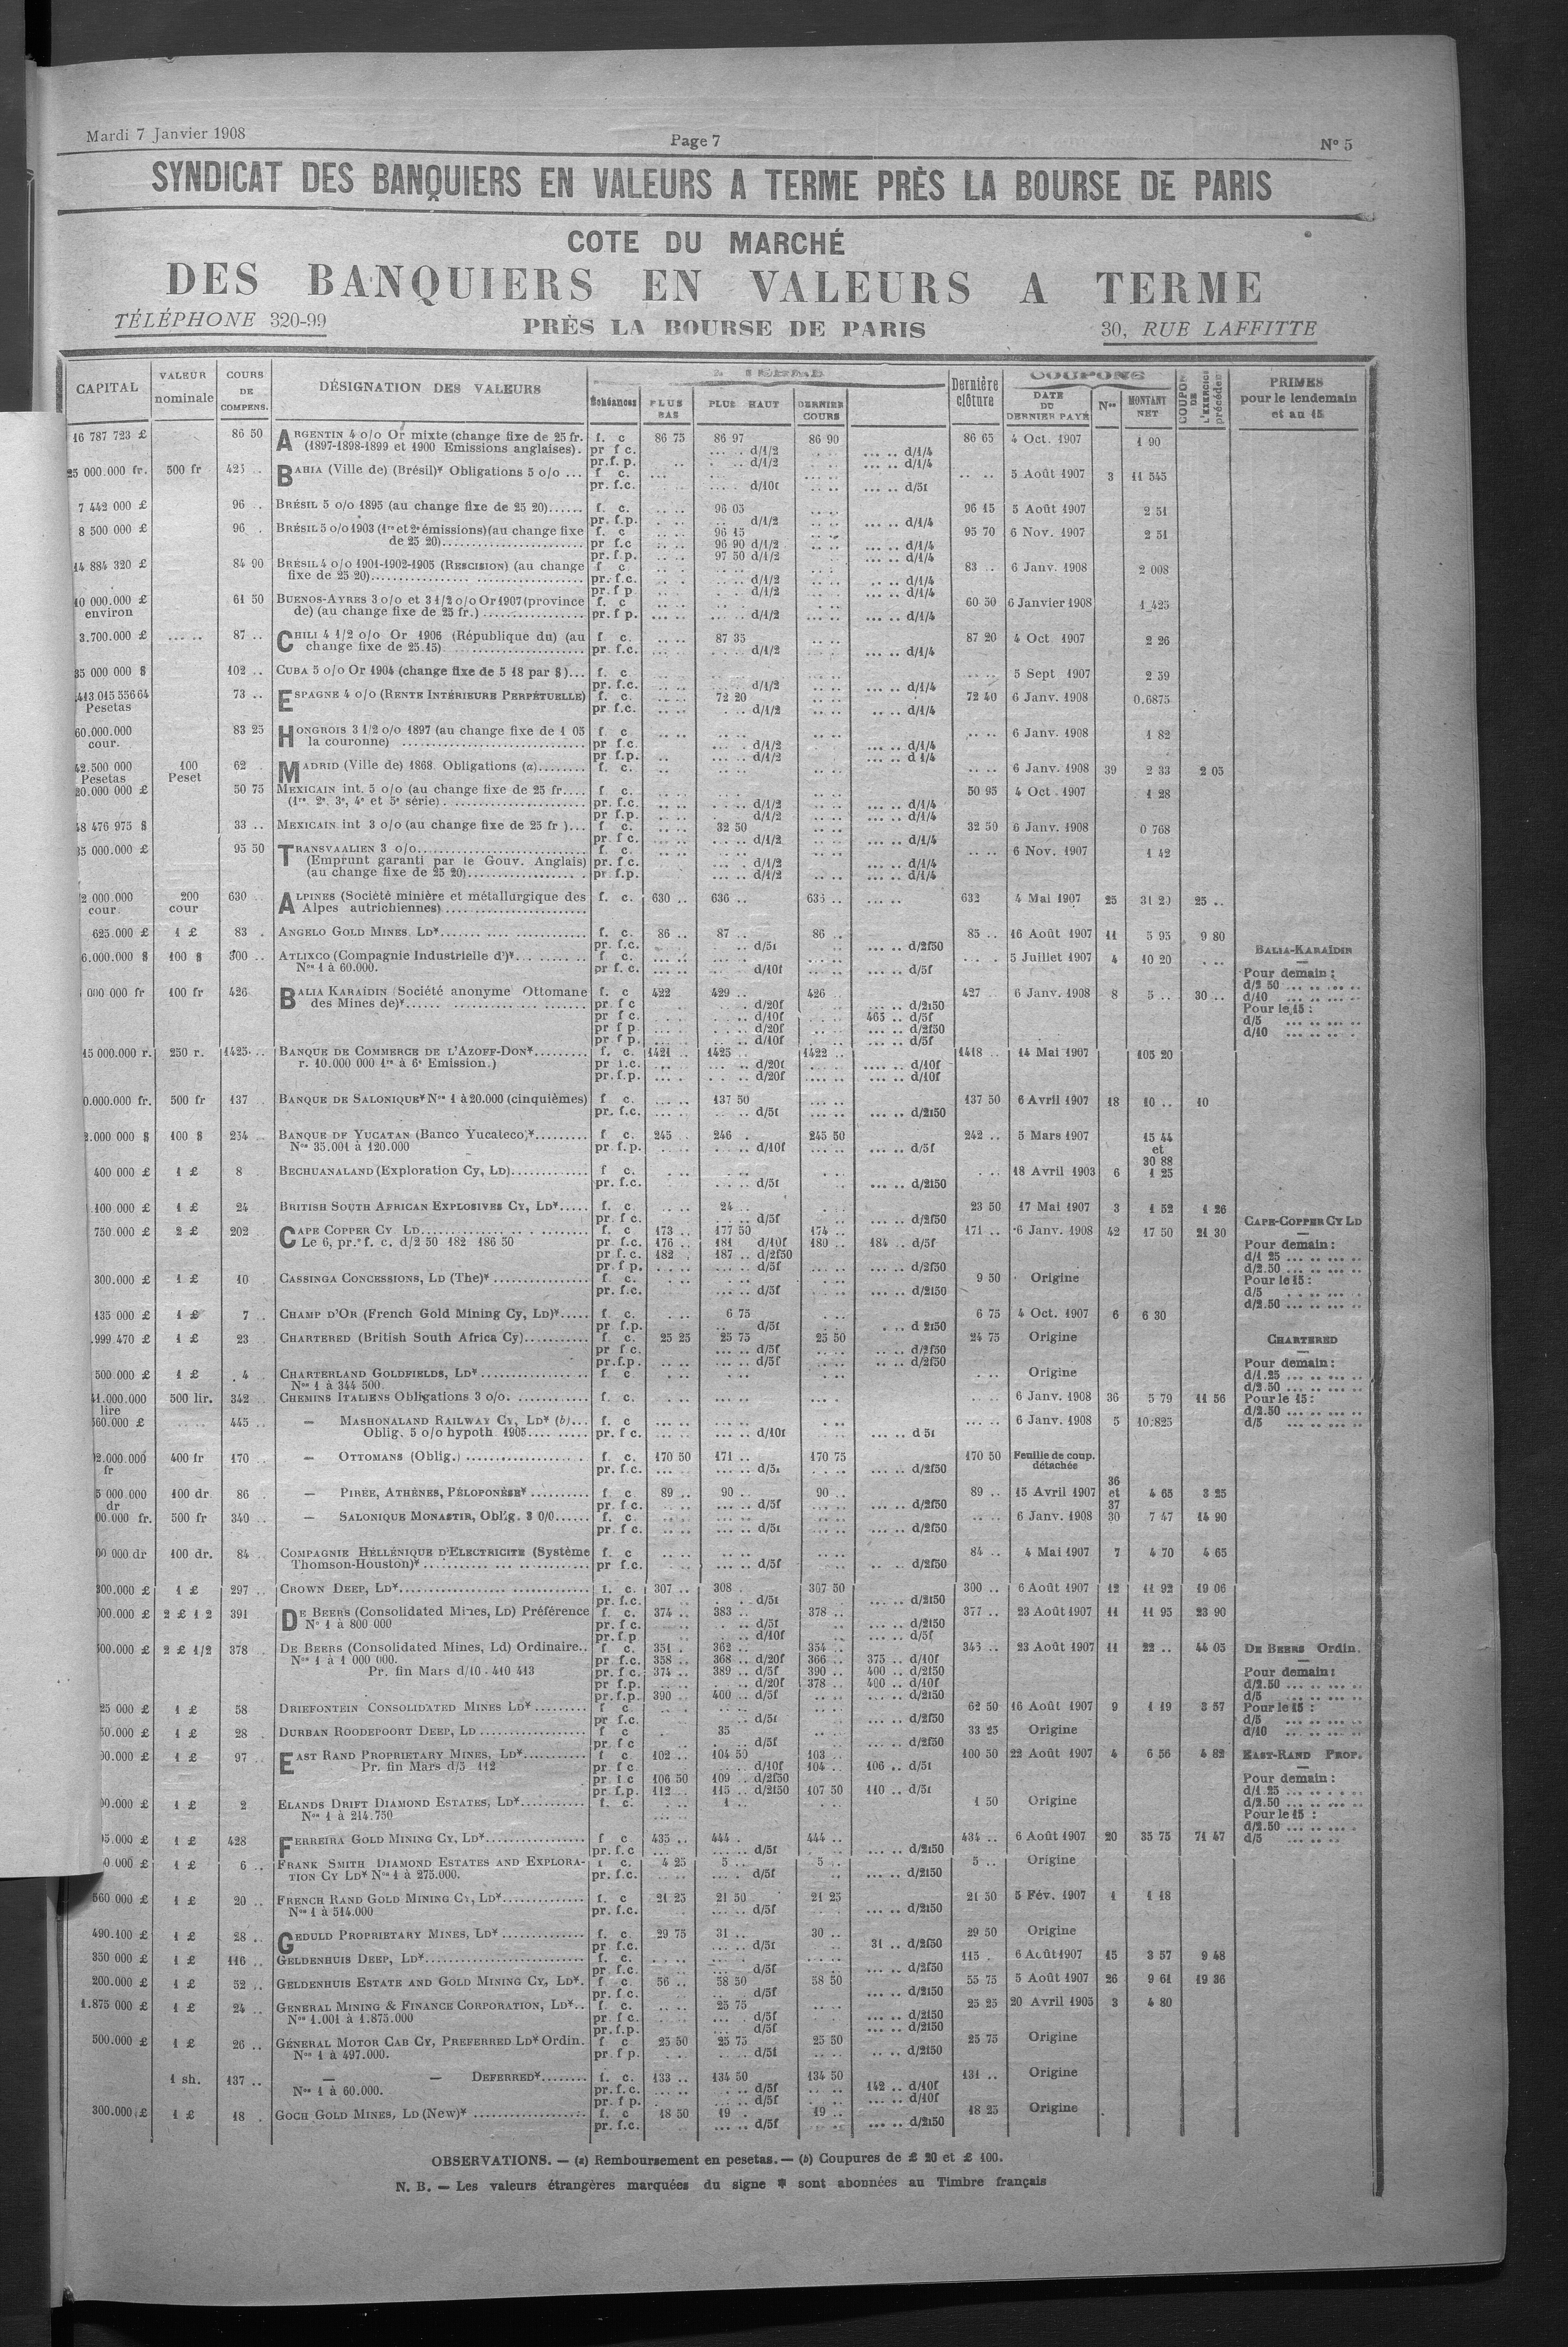 Mardi 7 Janvier 1908
Page 7
N° 5
SYNDICAT DES BANQUIERS EN VALEURS A TERME PRÈS LA BOURSE DE PARIS
COTE DU MARCHÉ
DES BANQUIERS EN VALEURS A TERME
TÉLÉPHONE 320-99 PRÈS LA BOURSE DE PARIS 30, RUE LAFFITTE
CAPITAL VALEUR nominale COURS DE COMPENS. DÉSIGNATION DES VALEURS Échéances PLUS BAS PLUS HAUT DERNIER COURS Dernière clôture COUPONS DATE DU DERNIER PAYÉ Nos MONTANT NET COUPON DE L'EXERCICE précédent PRIMES pour le lendemain et au 15
16 787 723 £ 86 50 ARGENTIN 4 o/o Or mixte (change fixe de 25 fr. f. c 86 75 86 97 86 90 86 65 4 Oct. 1907 1 90
(1897-1898-1899 et 1900 Emissions anglaises). pr f c. .... d/1/2 .... d/1/4
pr.f. p. d/1/2 .... d/1/4
25 000.000 fr. 500 fr 425 .. BAHIA (Ville de) (Brésil)* Obligations 5 o/o ... f c. 5 Août 1907 3 11 545
pr. f.c. d/10f .... d/5f
7 442 000 £ 96 .. BRÉSIL 5 o/o 1895 (au change fixe de 25 20)...... f. c. 96 05 96 15 5 Août 1907 2 51
pr. f.p. d/1/2 .... d/1/4
8 500 000 £ 96 . BRÉSIL 5 o/o 1903 (1re et 2e émissions) (au change fixe f. c 96 15 95 70 6 Nov. 1907 2 51
de 25 20)........ pr f.c 96 90 d/1/2 .... d/1/4
pr. f.p. 97 50 d/1/2 .... d/1/4
14 884 320 £ 84 90 BRÉSIL 4 o/o 1901-1902-1905 (RESCISION) (au change f c 83 .. 6 Janv. 1908 2 008
fixe de 25 20)........ pr. f.c. d/1/2 .... d/1/4
pr. f p d/1/2 .... d/1/4
10 000.000 £ 61 50 BUENOS-AYRES 3 o/o et 3 1/2 o/o Or 1907 (province f. c 60 50 6 Janvier 1908 1 425
environ de) (au change fixe de 25 fr.) ........ pr. f p. d/1/2 .... d/1/4
3.700.000 £ 87 .. CHILI 4 1/2 o/o Or 1906 (République du) (au f c. 87 35 87 20 4 Oct. 1907 2 26
change fixe de 25.15) ........ pr. f.c. d/1/2 .... d/1/4
35 000 000 $ 102 .. CUBA 5 o/o Or 1904 (change fixe de 5 18 par $)... f. c. 5 Sept 1907 2 59
pr. f.c. d/1/2 .... d/1/4
413 015 556 64 73 .. ESPAGNE 4 o/o (RENTE INTÉRIEURE PERPÉTUELLE) f. c. 72 20 72 40 6 Janv. 1908 0.6875
Pesetas pr. f.c. d/1/2 .... d/1/4
60.000.000 83 25 HONGROIS 3 1/2 o/o 1897 (au change fixe de 1 05 f. c 6 Janv. 1908 1 82
cour. la couronne) ........ pr f.c. d/1/2 .... d/1/4
pr f.p. d/1/2 .... d 1/4
42.500 000 100 62 . MADRID (Ville de) 1868. Obligations (a)........ f. c. 6 Janv. 1908 39 2 33 2 05
Pesetas Peset
20.000 000 £ 50 75 MEXICAIN int. 5 o/o (au change fixe de 25 fr.... f c. 50 95 4 Oct . 1907 1 28
(1re, 2e, 3e, 4e et 5e série). ........ pr. f.c. d/1/2 .... d/1/4
pr f.p. d/1/2 .... d/1/4
48 476 975 $ 33 .. MEXICAIN int 3 o/o (au change fixe de 25 fr )... f c. 32 50 32 50 6 Janv. 1908 0 768
pr f c. d/1/2 .... d/1/4
35 000.000 £ 95 50 TRANSVAALIEN 3 o/o........ f. c. 6 Nov. 1907 1 42
(Emprunt garanti par le Gouv. Anglais) pr. f.c. d/1/2 .... d/1/4
(au change fixe de 25 20)........ pr. f.p. d/1/2 .... d/1/4
2 000.000 200 630 .. ALPINES (Société minière et métallurgique des f. c. 630 .. 636 .. 635 .. 632 4 Mai 1907 25 31 20 25 ..
cour cour Alpes autrichiennes) ........
625.000 £ 1 £ 83 . ANGELO GOLD MINES, LD*........ f. c. 86 .. 87 .. 86 .. 85 .. 16 Août 1907 11 5 95 9 80
pr. f.c. d/5f .... d/2f50
6.000.000 $ 100 $ 300 .. ATLIXCO (Compagnie Industrielle d')*........ f c. 5 Juillet 1907 4 10 20
Nos 1 à 60.000. pr f. c. d/10f .... d/5f
000 000 fr 100 fr 426 BALIA KARAÏDIN (Société anonyme Ottomane f. c 422 429 .. 426 .. 427 6 Janv. 1908 8 5 .. 30 ..
des Mines de)*........ pr f c d/20f .... d/2f50
pr f c. d/10f 465 .. d/5f
pr f p d/20f .... d/2f50
pr f p. d/10f d/5f
BALIA-KARAÏDIN
Pour demain :
d/2 50
d/10
Pour le 15 :
d/5
d/10
15 000.000 r. 250 r. 1425 .. BANQUE DE COMMERCE DE L'AZOFF-DON*........ f. c. 1421 .. 1425 .. 1422 .. 1418 .. 14 Mai 1907 105 20
r. 10.000 000 1re à 6e Emission.) pr f.c. d/20f .... d/10f
pr. f.p. d/20f .... d/10f
0.000.000 fr. 500 fr 137 BANQUE DE SALONIQUE* Nos 1 à 20.000 (cinquièmes) f c. 137 50 137 50 6 Avril 1907 18 10 .. 10
pr. f.c. d/5f .... d/2f50
2.000 000 $ 100 $ 254 BANQUE DE YUCATAN (Banco Yucateco)*........ f c. 245 246 . 245 50 242 .. 5 Mars 1907 15 44
Nos 35.001 à 120.000 pr f.p. d/10f .... d/5f et
30 88
400 000 £ 1 £ 8 BECHUANALAND (Exploration Cy, LD)........ f c. 18 Avril 1903 6 1 25
pr. f.c. d/5f .... d/2f50
100 000 £ 1 £ 24 BRITISH SOUTH AFRICAN EXPLOSIVES CY, LD*..... f. c. 24 .. 23 50 17 Mai 1907 3 1 52 1 26
pr f c. d/5f .... d/2f50
750 000 £ 2 £ 202 CAPE COPPER CY LD........ f. c. 173 .. 177 50 174 .. 171 .. 6 Janv. 1908 42 17 50 21 30
Le 6, pr. f. c. d/2 50 182 186 50 pr. f.c. 176 .. 181 d/10f 180 .. 184 .. d/5f
pr f. c. 182 . 187 .. d/2f50
pr f p. d/5f .... d/2f50
CAPE-COPPER CY LD
Pour demain :
d/1 25
d/2.50
Pour le 15 :
d/5
d/2.50
300.000 £ 1 £ 10 CASSINGA CONCESSIONS, LD (The)* ........ f c. 9 50 Origine
pr. f.c. d/5f .... d/2f50
135 000 £ 1 £ 7 CHAMP D'OR (French Gold Mining Cy, LD)*..... f. c. 6 75 6 75 4 Oct. 1907 6 6 30
pr f.p. d/5f d 2f50
.999 470 £ 1 £ 23 CHARTERED (British South Africa Cy)........ f. c. 25 25 25 75 25 50 24 75 Origine
pr f c. d/5f .... d/2f50
pr. f.p. d/5f d/2f50
CHARTERED
Pour demain :
d/1.25
d/2.50
Pour le 15 :
d/2.50
d/5
500 000 £ 1 £ 4 CHARTERLAND GOLDFIELDS, LD*........ f c Origine
Nos 1 à 344 500.
41.000.000 500 lir. 342 CHEMINS ITALIENS Obligations 3 o/o. ........ f. c. 6 Janv. 1908 36 5 79 11 56
lire
60.000 £ 445 .. — MASHONALAND RAILWAY CY, LD* (b)... f. c 6 Janv. 1908 5 10.825
Oblig. 5 o/o hypoth 1905........ pr f c. d/10f d 5f
2.000.000 400 fr 170 — OTTOMANS (Oblig.) ........ f. c. 170 50 171 .. 170 75 170 50 Feuille de coup. détachée
fr pr. f.c. d/5f .... d/2f50
5 000.000 100 dr. 86 — PIRÉE, ATHÈNES, PÉLOPONÈSE* ........ f. c 89 .. 90 .. 90 .. 89 .. 15 Avril 1907 36 et 37 4 65 3 25
dr pr. f c. d/5f .... d/2f50
00.000 fr. 500 fr 340 — SALONIQUE MONASTIR, Oblig. 3 0/0...... f. c. 6 Janv. 1908 30 7 47 14 90
pr f c. d/5f .... d/2f50
00 000 dr 100 dr. 84 COMPAGNIE HÉLLÉNIQUE D'ELECTRICITE (Système f. c 84 .. 4 Mai 1907 7 4 70 4 65
Thomson-Houston)* ........ pr f.c. d/5f d/2f50
300.000 £ 1 £ 297 .. CROWN DEEP, LD*........ f. c. 307 .. 308 . 307 50 300 .. 6 Août 1907 12 11 92 19 06
pr. f.c. d/5f d/2f50
000.000 £ 2 £ 1 2 391 DE BEERS (Consolidated Mines, LD) Préférence f. c. 374 .. 383 .. 378 .. 377 .. 23 Août 1907 11 11 95 23 90
N° 1 à 800 000 pr. f c. d/5f d/2f50
pr. f.p d/10f .... d/5f
000.000 £ 2 £ 1/2 378 DE BEERS (Consolidated Mines, Ld) Ordinaire.. f c. 351 . 362 .. 354 .. 345 .. 23 Août 1907 11 22 .. 44 05
Nos 1 à 1 000 000. pr. f.c. 358 .. 368 .. d/20f 366 .. 375 .. d/10f
Pr. fin Mars d/10 . 410 413 pr. f c. 374 .. 389 .. d/5f 390 .. 400 .. d/2f50
pr f.p. d/20f 378 .. 400 .. d/10f
pr. f.p. 390 .. 400 .. d/5f .... d/2f50
DE BEERS Ordin.
Pour demain :
d/2.50
d/5
Pour le 15 :
d/5
d/10
25 000 £ 1 £ 58 DRIEFONTEIN CONSOLIDATED MINES LD*........ f c. 62 50 16 Août 1907 9 1 19 3 57
pr f.c. d/5f .... d/2f50
50.000 £ 1 £ 28 . DURBAN ROODEPOORT DEEP, LD ........ f c 35 33 25 Origine
pr. f c d/5f .... d/2f50
00.000 £ 1 £ 97 . EAST RAND PROPRIETARY MINES, LD*........ f c. 102 .. 104 50 103 .. 100 50 22 Août 1907 4 6 56 4 82
Pr. fin Mars d/5 112 pr f c. d/10f 104 .. 106 .. d/5f
pr f c 106 50 109 .. d/2f50
pr. f.p. 112 .. 115 .. d/2f50 107 50 110 .. d/5f
EAST-RAND PROP.
Pour demain :
d/1 25
d/2.50
Pour le 15 :
d/2.50
d/5
00.000 £ 1 £ 2 ELANDS DRIFT DIAMOND ESTATES, LD*........ f. c. 1 .. 1 50 Origine
Nos 1 à 214.750
5.000 £ 1 £ 428 FERREIRA GOLD MINING CY, LD*........ f c 435 .. 444 . 444 .. 434 .. 6 Août 1907 20 35 75 71 47
pr. f.c d/5f .... d/2f50
0.000 £ 1 £ 6 .. FRANK SMITH DIAMOND ESTATES AND EXPLORA- f. c. 4 25 5 .. 5 .. 5 .. Origine
TION CY LD* Nos 1 à 275.000. pr. f.c. d/5f .... d/2f50
560 000 £ 1 £ 20 .. FRENCH RAND GOLD MINING CY, LD*........ f. c 21 25 21 50 21 25 21 50 5 Fév. 1907 1 1 18
Nos 1 à 514.000 pr. f.c. d/5f .... d/2f50
490.100 £ 1 £ 28 .. GEDULD PROPRIETARY MINES, LD*........ f. c. 29 75 31 .. 30 .. 29 50 Origine
pr f.c. d/5f 31 .. d/2f50
350 000 £ 1 £ 116 .. GELDENHUIS DEEP, LD*........ f. c. 115 . 6 Août 1907 15 3 57 9 48
pr. f.c. d/5f .... d/2f50
200.000 £ 1 £ 52 .. GELDENHUIS ESTATE AND GOLD MINING CY, LD*. f c. 56 .. 58 50 58 50 55 75 5 Août 1907 26 9 61 19 36
pr. f.c. d/5f .... d/2f50
1.875 000 £ 1 £ 24 .. GENERAL MINING & FINANCE CORPORATION, LD*.. f. c. 25 75 25 25 20 Avril 1905 3 4 80
Nos 1.001 à 1.875.000 pr f c. d/5f .... d/2f50
pr. f.p. d/5f .... d/2f50
500.000 £ 1 £ 26 .. GÉNERAL MOTOR CAB CY, PREFERRED LD* Ordin. f c 25 50 25 75 25 50 25 75 Origine
Nos 1 à 497.000. pr. f p. d/5f d/2f50
1 sh. 137 .. — — DEFERRED*........ f. c. 133 .. 134 50 134 50 131 .. Origine
Nos 1 à 60.000. pr. f.c. d/5f 142 .. d/10f
pr. f p. d/5f .... d/10f
300.000 £ 1 £ 18 . GOCH GOLD MINES, LD (New)* ........ f. c 18 50 19 . 19 .. 18 25 Origine
pr. f.c. d/5f .... d/2f50
OBSERVATIONS. — (a) Remboursement en pesetas. — (b) Coupures de £ 20 et £ 100.
N. B. — Les valeurs étrangères marquées du signe * sont abonnées au Timbre français